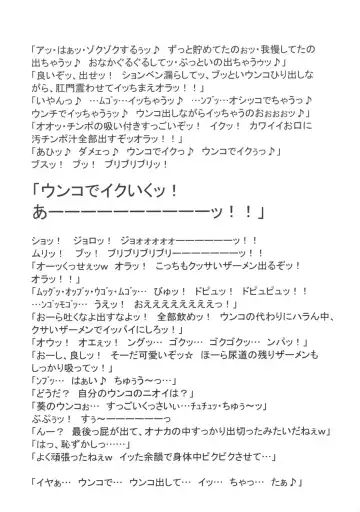 「アッ・はぁッ・ゾクゾクするぅッ♪ ずっと貯めてたのぉッ・我慢してたの
出ちゃうッ♪ おなかぐるぐるして・ぶっといの出ちゃうゥッ♪」
「良いぞッ、出せッ! ションベン漏らしてッ、ブッといウンコひり出しな
がら、肛門震わせてイッちまえオラッ!!」
「いやんっ♪ …ムゴッ…イッちゃうッ♪ …ンブッ…オシッコでちゃうっ♪
ウンチでイッちゃうぅッ♪ ウンコ出しながらイッちゃうのおぉおぉッ♪」
「オオッ・チンポの吸い付きすっごいぞッ! イクッ! カワイイお口に
汚チンポ汁全部出すぞッオラッ!!」
「あひッ♪ ダメェっ♪ ウンコでイクっ♪ ウンコでイクぅっ♪」
ブスッ! ブッ! ブリブリブリッ!
「ウンコでイクいくッ!
あーーーーーーーーーーッ!!」
ショッ! ジョロッ! ジョォォォォォーーーーーーッ!
ムリッ! ブッ! ブリブリブリブリーーーーーーーッ!
「オーッくっせぇッw オラッ! こっちもクッサいザーメン出るぞッ!
オラッ!!」
「ムッグッ・オップッ・ウゴッ・ムゴッ… びゅッ! ドピュッ! ドピュピュッ!
…ンゴッモゴッ… うえッ! おええええええええっ!」
「おーら吐くなよ出すなよッ! 全部飲めッ! ウンコの代わりにハラん中、
クサいザーメンでイッパイにしろっ!」
「オウッ! オエぇッ! ングッ… ゴクッ… ゴクゴクッ… ンパッ!」
「おーし、良しッ! そーだ可愛いぞッ☆ ほーら尿道の残りザーメンも
しっかり吸ってッ!」
「ンブッ… はぁい♪ ちゅぅう〜っ…」
「どうだ? 自分のウンコのニオイは?」
「葵のウンコぉ… すっごいくっさいぃ…チュチュッ・ちゅう〜ッ」
ぶぷぅッ! すぅ〜ーーーーーーッ!
「んー? 最後っ屁が出て、オナカの中すっかり出切ったみたいだねぇw」
「はっ、恥ずかしっ……」
「よく頑張ったねぇw イッた余韻で身体中ビクビクさせて…」
「イヤぁ… ウンコで… ウンコ出して… イッ… ちゃっ… たぁ♪」